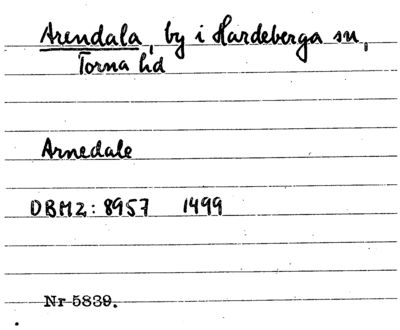 Arendala, by i Hardeberga sn,
Torna hd
Arnedale
DBMZ: 8957 1499
Nr 5839.